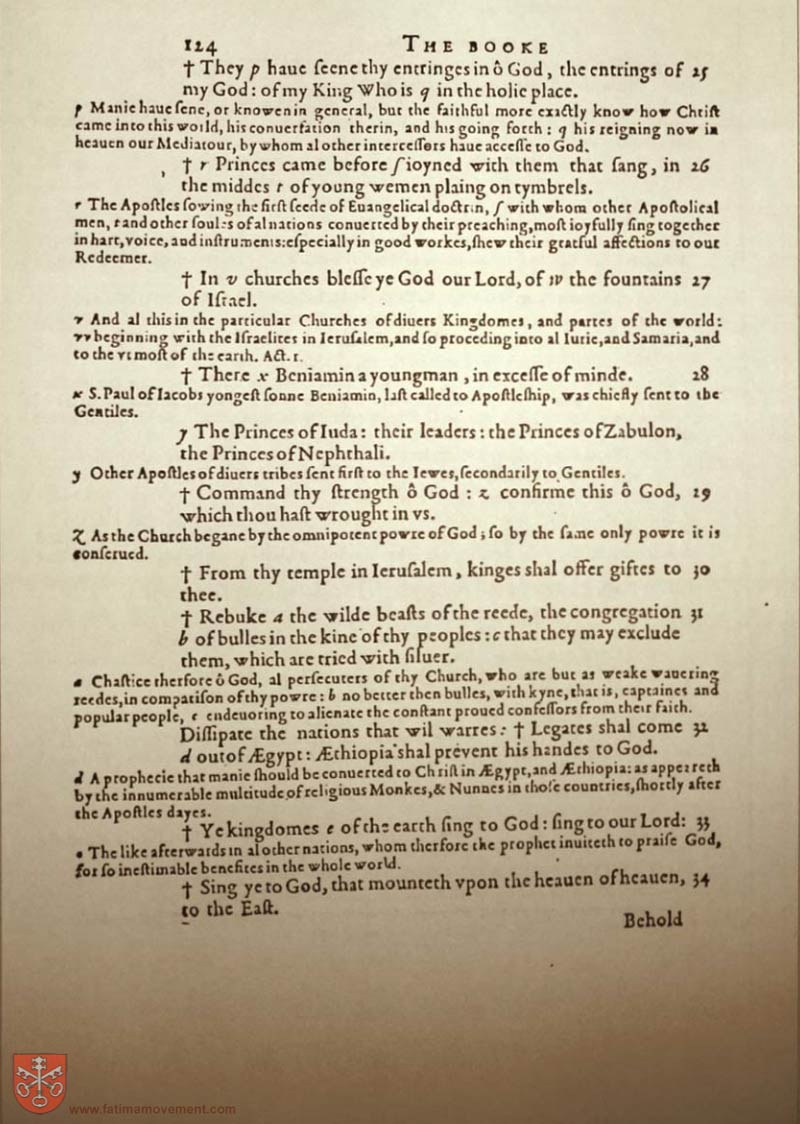 124 THE BOOKE
† They p haue ſeene thy entringes in ô God, the entrings of 25
my God: of my King Who is q in the holie place.
p Manie haue ſene, or knowen in general, but the faithful more exactly know how Chriſt
came into this world, his conuerſation therin, and his going forth: q his reigning now in
heauen our Mediatour, by whom al other interceſſors haue acceſſe to God.
† r Princes came before ſ ioyned with them that ſang, in 26
the middes t of young wemen plaing on tymbrels.
r The Apoſtles ſowing the firſt ſeede of Euangelical doctrin, ſ with whom other Apoſtolical
men, t and other ſoules of al nations conuerted by their preaching, moſt ioyfully ſing together
in hart, voice, and inſtruments: eſpecially in good workes, ſhew their grateful affections to our
Redeemer.
† In v churches bleſſe ye God our Lord, of w the fountains 27
of Iſrael.
v And al this in the particular Churches of diuers Kingdomes, and partes of the world:
vv beginning with the Iſraelites in Ieruſalem, and ſo proceding into al Iurie, and Samaria, and
to the vtmoſt of the earth. Act. 1.
† There x Beniamin a youngman, in exceſſe of minde. 28
x S. Paul of Iacobs yongeſt ſonne Beniamin, laſt called to Apoſtleſhip, was chiefly ſent to the
Gentiles.
y The Princes of Iuda: their leaders: the Princes of Zabulon,
the Princes of Nephthali.
y Other Apoſtles of diuers tribes ſent firſt to the Iewes, ſecondarily to Gentiles.
† Command thy ſtrength ô God: z confirme this ô God, 29
which thou haſt wrought in vs.
z As the Church begane by the omnipotent powre of God; ſo by the ſame only powre it is
conſerued.
† From thy temple in Ieruſalem, kinges shal offer giftes to 30
thee.
† Rebuke a the wilde beaſts of the reede, the congregation 31
b of bulles in the kine of thy peoples: c that they may exclude
them, which are tried with ſiluer.
a Chaſtice therfore ô God, al perſecuters of thy Church, who are but as weake wauering
reedes, in compariſon of thy powre: b no better then bulles, with kyne, that is, captaines and
popular people, c endeuoring to alienate the conſtant proued confeſſors from their faith.
Diſſipate the nations that wil warres: † Legates shal come 32
d out of Ægypt: Æthiopia shal preuent his handes to God.
d A prophecie that manie ſhould be conuerted to Chriſt in Ægypt, and Æthiopia: as appeereth
by the innumerable multitude of religious Monkes, & Nunnes in thoſe countries, ſhortly after
the Apoſtles dayes.
† Ye kingdomes e of the earth ſing to God: ſing to our Lord: 33
e The like afterwards in al other nations, whom therfore the prophet inuiteth to praiſe God,
for ſo ineſtimable benefites in the whole world.
† Sing ye to God, that mounteth vpon the heauen of heauen, 34
to the Eaſt.
Behold
www.fatimamovement.com